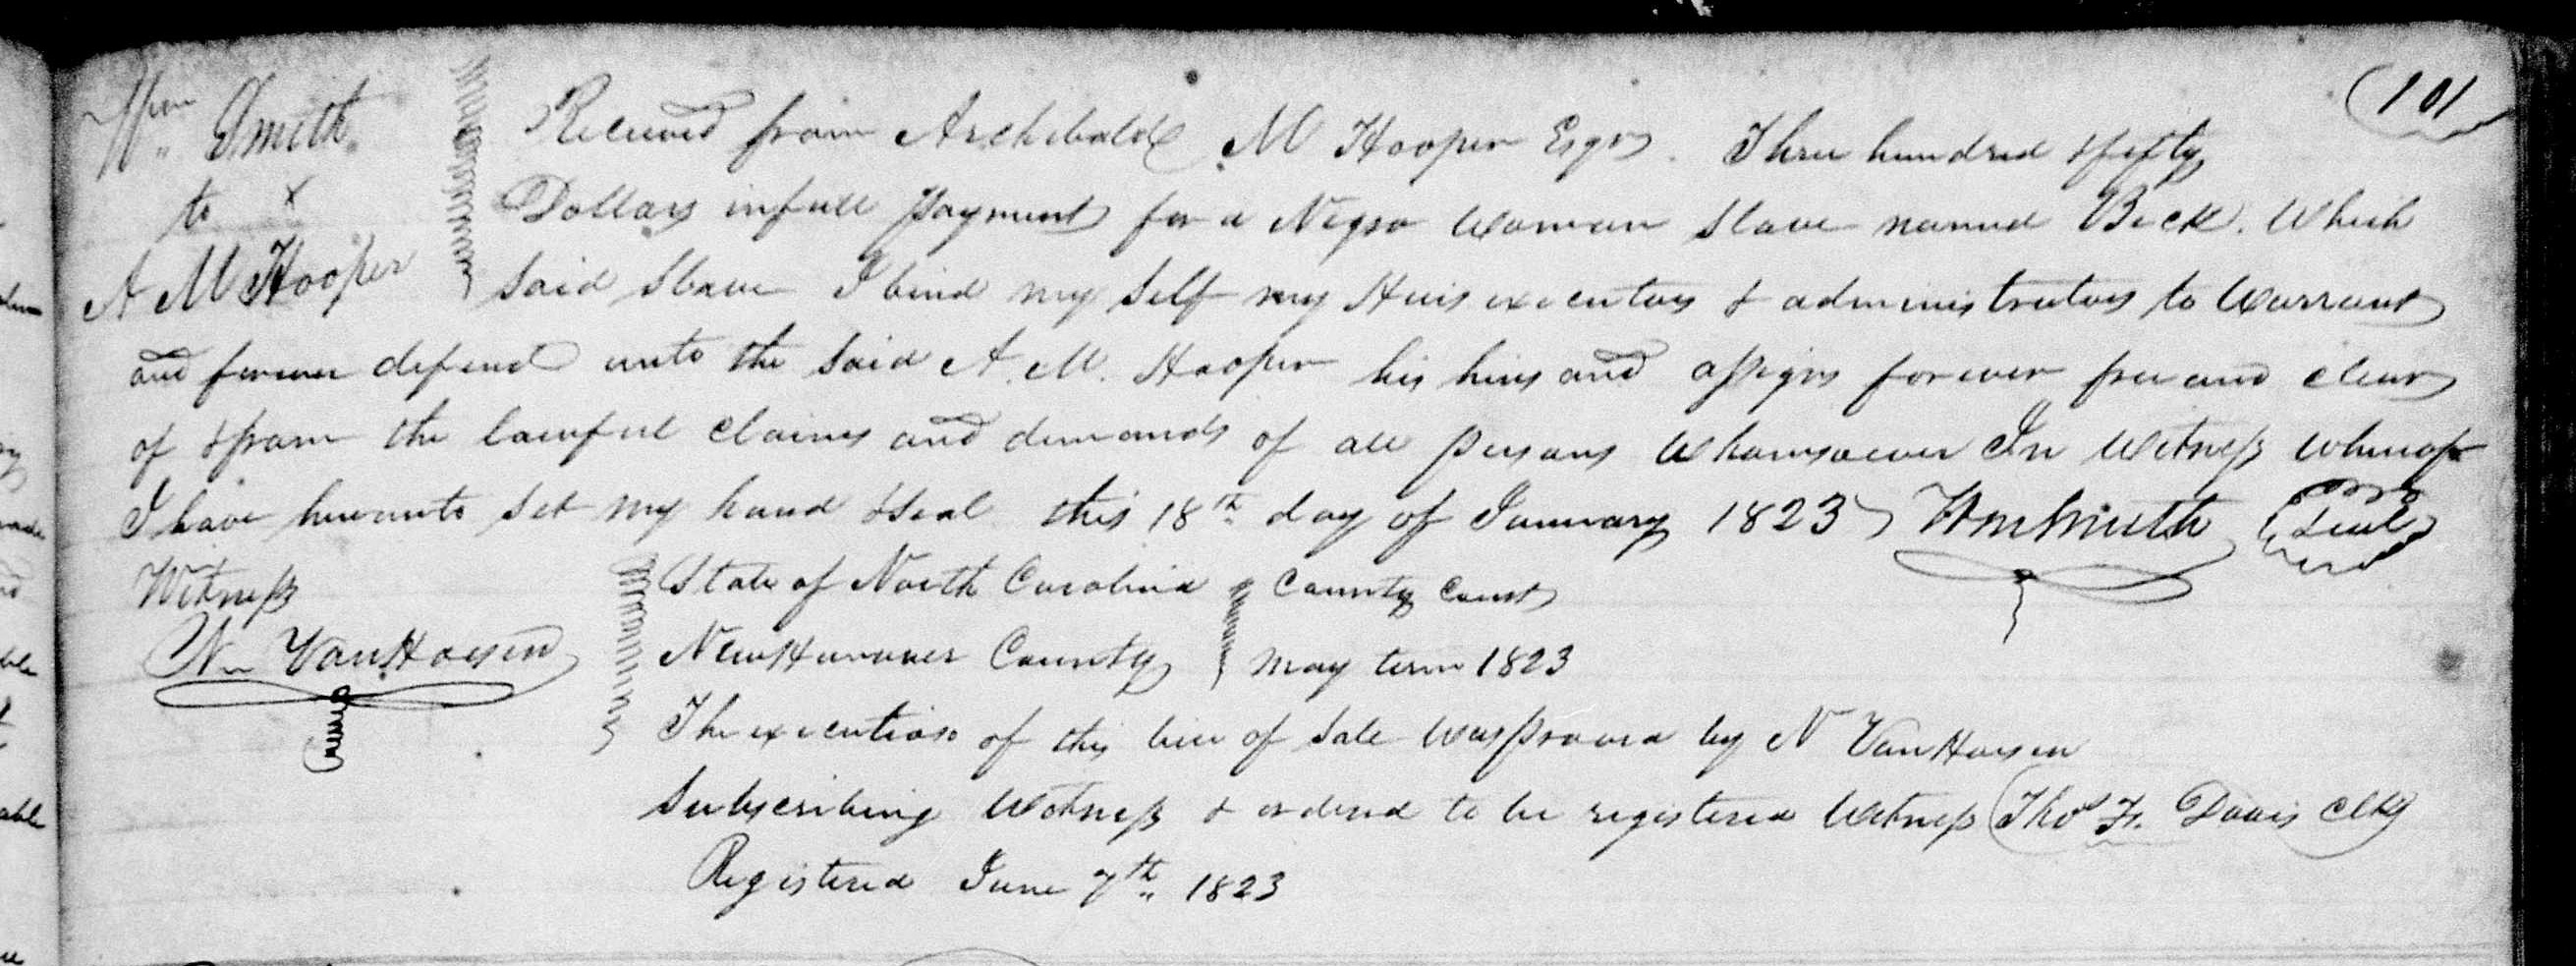 101
Wm Smith
to x
A M Hooper
Received from Archibald M Hooper Esqr. Three hundred & fifty
Dollars in full payment for a Negro Woman Slave named Beck. Which
said Slave I bind my Self my Heirs executors & administrators to Warrant
and forever defend unto the said A. M. Hooper his heirs and assigns forever free and clear
of & from the lawful claims and demands of all persons Whomsoever In Witness whereof
I have hereunto set my hand & seal this 18th day of January 1823 Wm Smith Seal
Witness
N VanHoesen
State of North Carolina County Court
New Hanover County May term 1823
The execution of this bill of Sale was proved by N VanHoesen
Subscribing Witness & ordered to be registered Witness Thos F. Davis Clk
Registered June 7th 1823